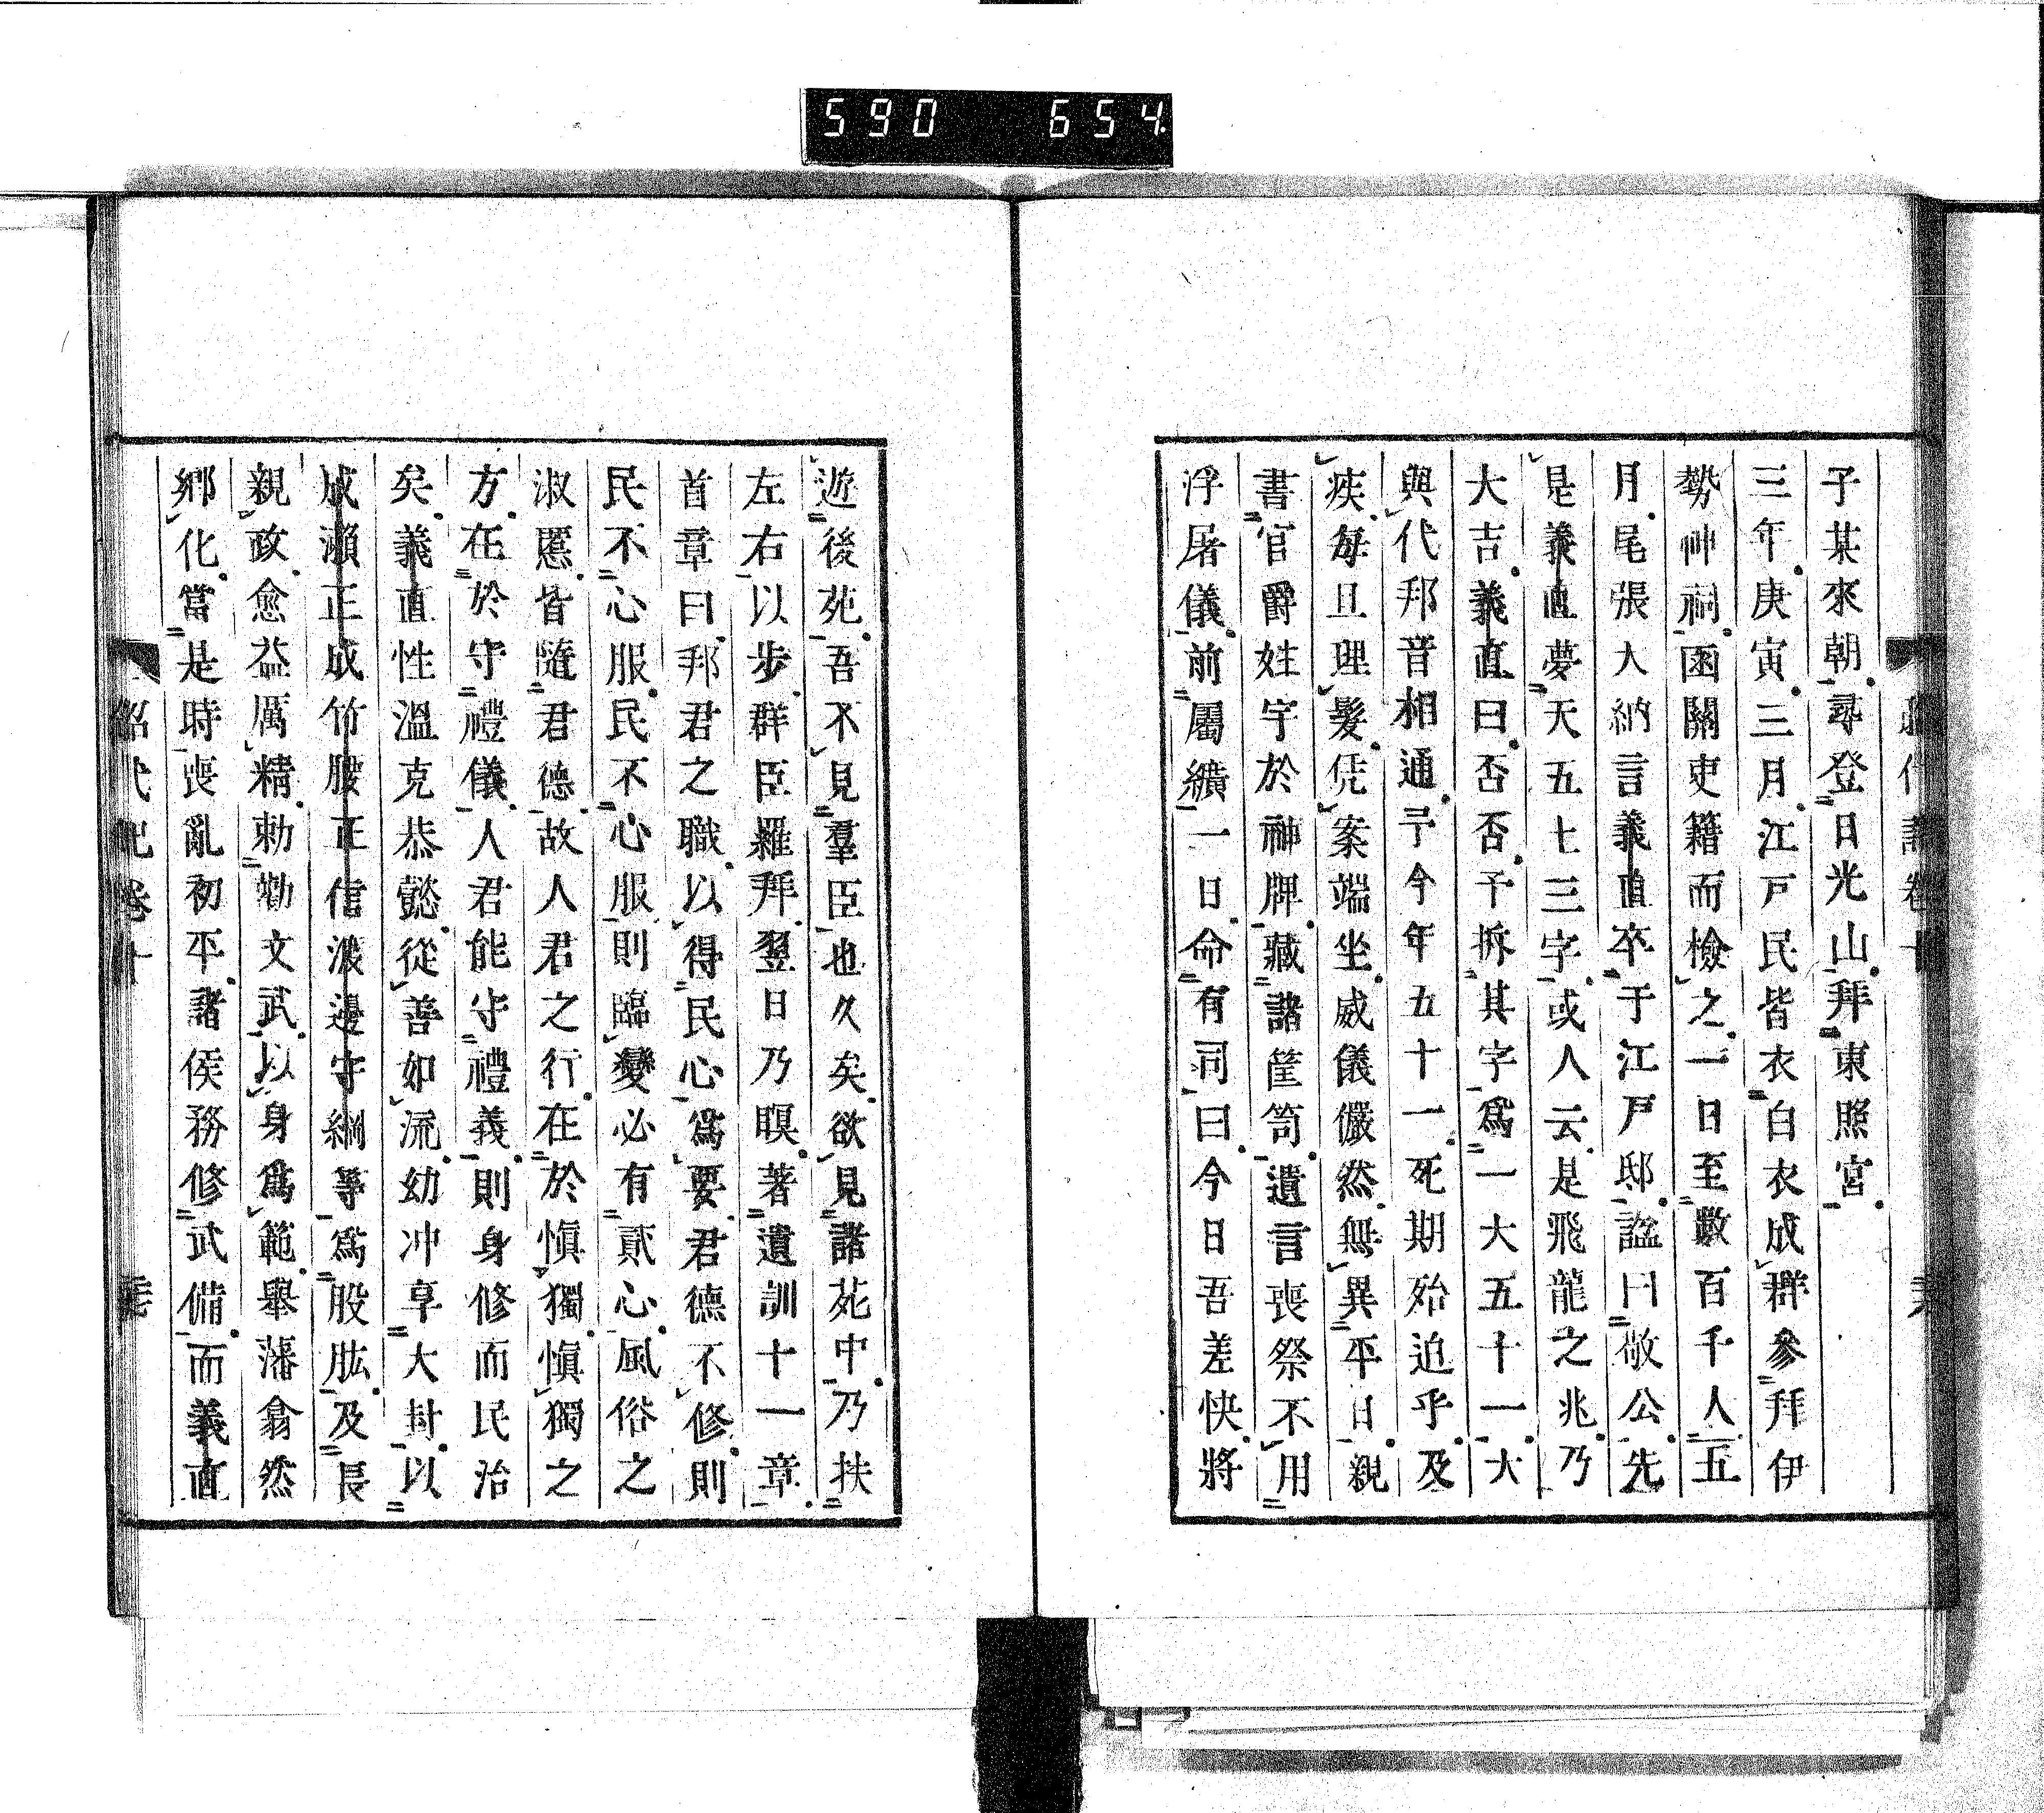 590 654
子某來朝尋登日光山拜東照宮
三年庚寅三月江戸民皆衣白衣成群參拜伊
勢神祠函關吏籍而檢之一日至數百千人五
月尾張大納言義直卒于江戸邸諡曰敬公先
是義直夢天五七三字或人云是飛龍之兆乃
大吉義直曰否否予拆其字爲一大五十一大
與代邦音相通予今年五十一死期殆迫乎及
疾每旦理髮凭案端坐威儀儼然無異平日親
書官爵姓字於神牌藏諸筐笥遺言喪祭不用
浮屠儀前屬纊一日命有司曰今日吾差快將
遊後苑吾不見羣臣也久矣欲見諸苑中乃扶
左右以步群臣羅拜翌日乃瞑著遺訓十一章
首章曰邦君之職以得民心爲要君德不修則
民不心服民不心服則臨變必有貳心風俗之
淑慝皆隨君德故人君之行在於愼獨愼獨之
方在於守禮儀人君能守禮義則身修而民治
矣義直性溫克恭懿從善如流幼冲享大封以
成瀨正成竹腰正信渡邊守綱等爲股肱及長
親政愈益厲精勅勸文武以身爲範舉藩翕然
鄉化當是時喪亂初平諸侯務修武備而義直
昭代記卷十